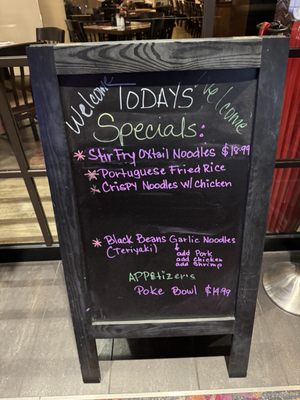 Welcome TODAYS' Welcome
Specials:
* Stir Fry Oxtail Noodles $18.99
* Portuguese Fried Rice
* Crispy Noodles w/ Chicken
* Black Beans Garlic Noodles
(Teriyaki)
add Pork
add Chicken
add Shrimp
APPetizer's
Poke Bowl $14.99